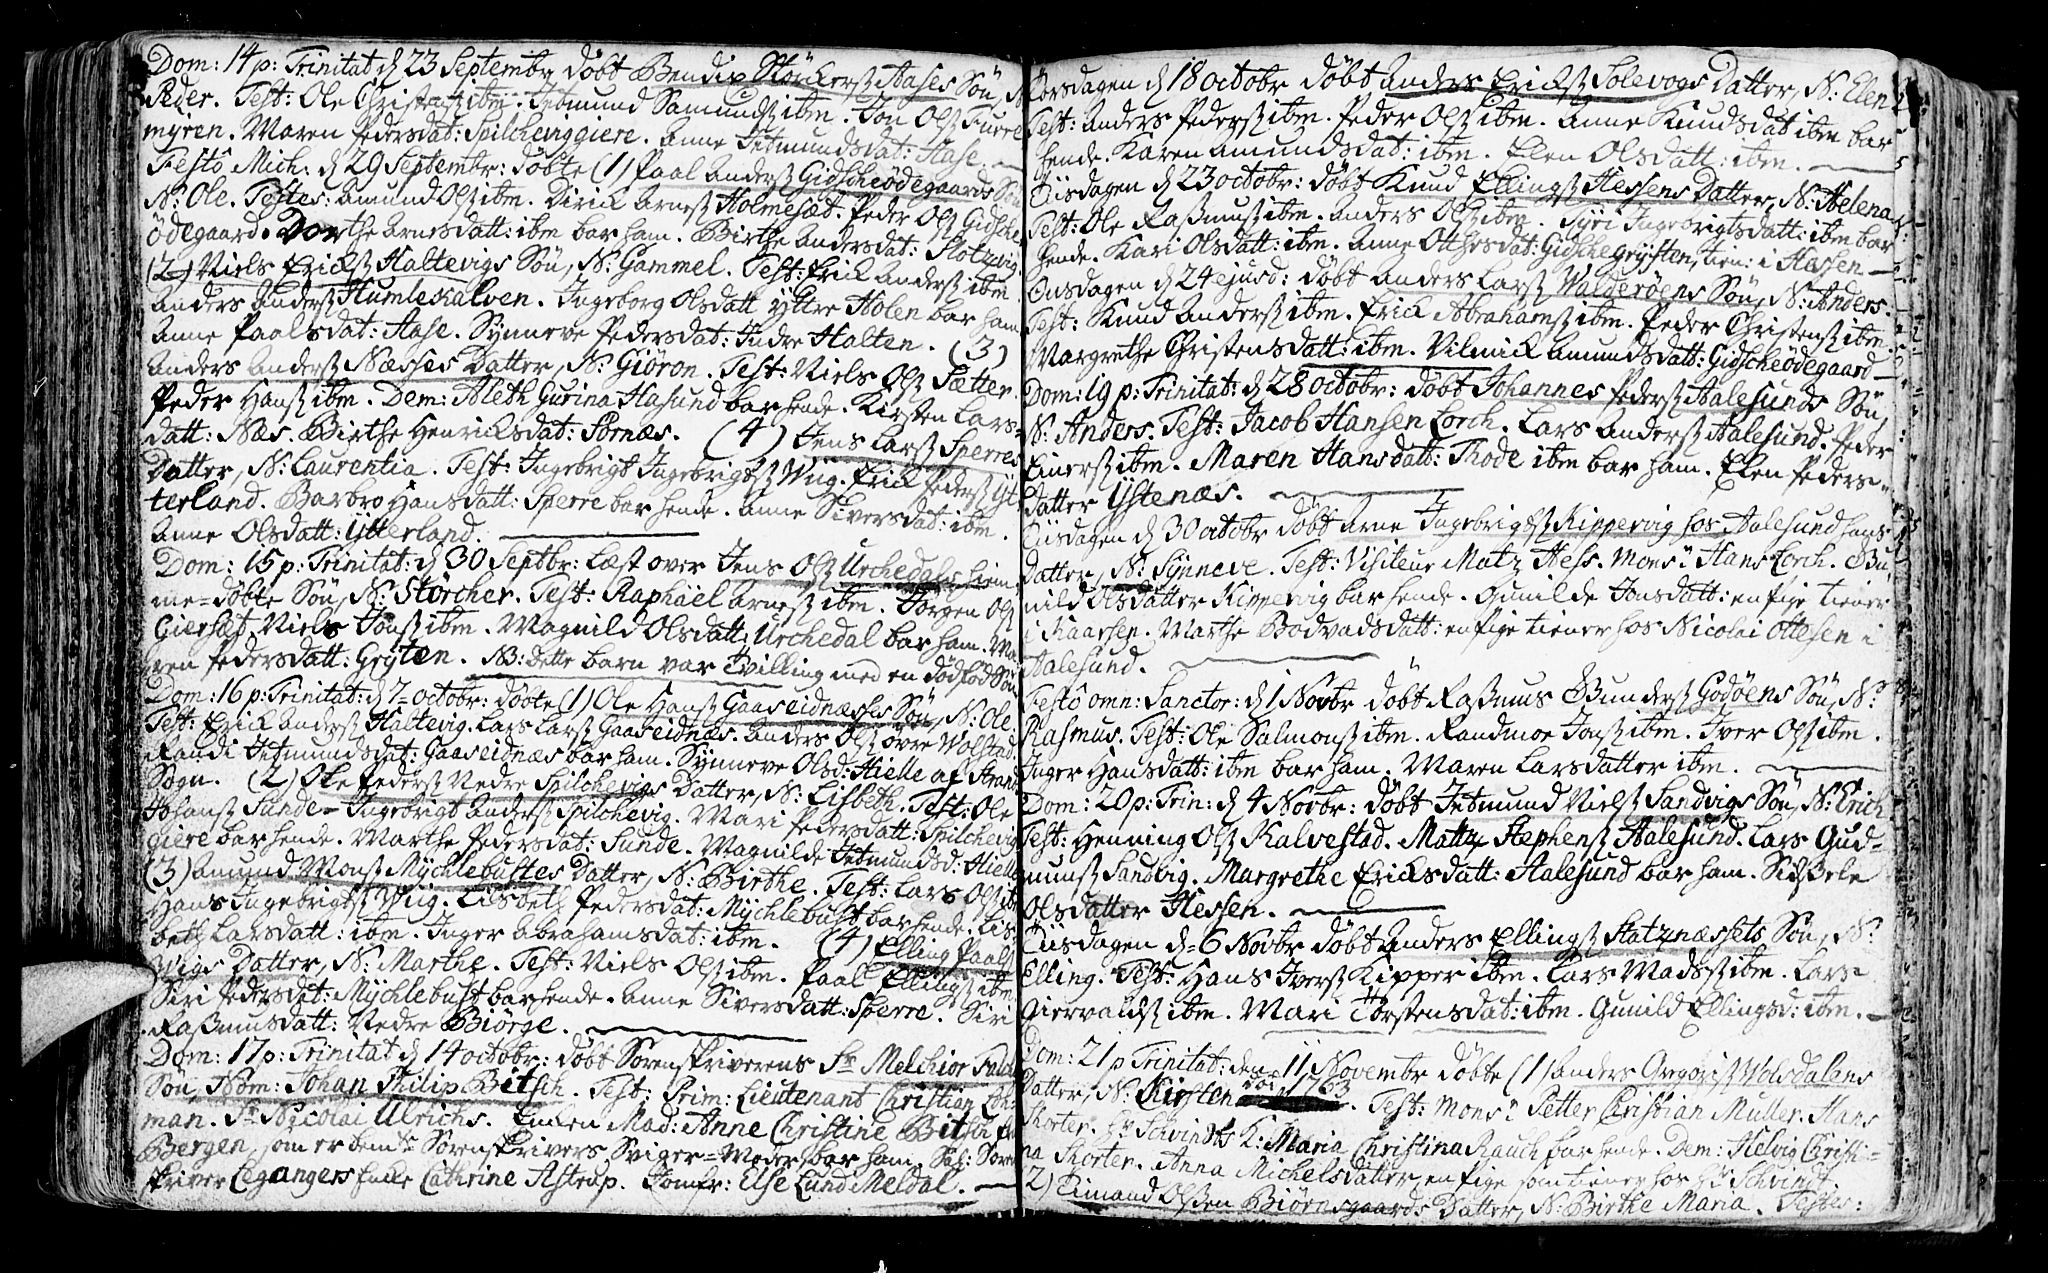 Dom: 14 p: Trinitat d 23 Septembr döbt Bendix Störkerß Aases Sön, N
Peder. Test: Ole Christenß ibm. Jetmund Samundß ibm. Jon Olß Furre
myren. Maren Pedersdat: Spilcheviggiere. Anne Jetmundsdat: Aase.
Festô Mich: d 29 Septembr: döbte (1) Paal Anderß Gidscheödegaards Sön
N: Ole. Testes: Amund Olß ibm. Dirick Arneß Holmesæt. Peder Olß Gidsche
ödegaard. Dorthe Arnesdatt: ibm bar ham. Birthe Andersdat: Slotzvig.
(2) Niels Erickß Haltevigs Sön, N: Gammel. Test: Erick Anderß ibm.
Anders Anderß Humlekalven. Ingeborg Olsdatt Yttre Holen bar ham
Anne Paalsdat: Aase. Synneve Pedersdat: Indre Halten. (3)
Anders Anderß Næsses Datter, N: Giöron. Test: Niels Olß Sætter.
Peder Hanß ibm. Dem: Aleth Gurina Hasund bar hende. Kirsten Lars-
datt: Næs. Birthe Henricksdat: Sörnæs. (4) Jens Larß Sperres
Datter, N: Laurentia. Test: Ingebrigt Ingebrigtß Wiig. Erick Pederß Yt-
terland. Barbro Hansdatt: Sperre bar hende. Anne Siversdat: ibm.
Anne Olsdatt: Ytterland.
Dom: 15 p: Trinitat: d 30 Septbr: Læst over Jens Olß Urchedals hiem-
me=döbte Sön, N: Störcher. Test: Raphäel Arneß ibm. Jörgen Olß
Gierhöt. Niels Jönß ibm. Magnild Olsdatt: Urchedal bar ham. Ma-
ren Pedersdatt: Gryten. NB: Dette barn var Tvilling med en dödfød Sön
Dom: 16 p: Trinitat: d 7de octobr: döbte (1) Ole Hanß Gaaseidnæsses Sön, N: Ole
Test: Erick Anderß Haltevig. Lars Larß Gaaseidnæs. Anders Olß övre Wolstad
Randi Jetmundsdat: Gaaseidnæs bar ham. Synneve Olsd: Hielle af Strand
Sogn. (2) Ole Pederß Nedre Spilchevigs Datter, N: Lisbeth. Test: Ole
Johanß Sunde- Ingebrigt Anderß Spilchevig. Mari Pedersdatt: Spilchevig
giere bar hende. Marthe Pedersdat: Sunde. Magnilde Jetmundsd: Hielle
(3) Amund Monß Mychlebustes Datter, N: Birthe. Test: Lars Olß ibm
Hans Ingebrigtß Wiig. Lisbeth Pedersdat: Mychlebust bar hende. Lis-
beth Larsdatt: ibm. Inger Abrahamsdat: ibm. (4) Elling Paalß
Wigs Datter, N: Marthe. Test: Niels Olß ibm. Paal Ellingß ibm
Siri Pedersdat: Mychlebust bar hende. Anne Siversdatt: Sperre. Siri
Raßmusdatt: Nedre Biörge.
Dom: 17 p: Trinitat d 14 octobr: döbt Sorenskriverens Sr Melchior Falch
Sön, Nom: Johan Philip Bitsch. Test: Prim: Lieutenant Christian Loh-
man. Sr Nicolai Ulrichs. Enken Mad: Anne Christine Bitsch fra
Bergen, som er bemte Sorenskrivers Sviger=Moder bar ham. Sal: Soren
skriver Legangers Encke Cathrine Astrup. Jomfr: Else Lund Meldal.
Torsdagen d 18 octobr döbt Anders Erickß Solevogs Datter, N: Elen
Test: Anders Pederß ibm. Peder Olß ibm. Anne Knudsdat ibm bar
hende. Karen Amundsdat: ibm. Elen Olsdatt: ibm.
Tiisdagen d 23 octobr: döbt Knud Ellingß Hessens Datter, N: Helena
Test: Ole Raßmusß ibm. Anders Olß ibm. Syri Ingebrigtsdatt: ibm bar
hende. Kari Olsdatt: ibm. Anne Otthesdat: Gidschegryften, tien: i Hessen
Onsdagen d 24 ejusd: döbt Anders Larß Walderöens Sön, N: Anders.
Test: Knud Anderß ibm. Erick Abrahamß ibm. Peder Christenß ibm.
Margrethe Christensdatt: ibm. Vilmick Amundsdatt: Gidscheödegaard
Dom: 19 p: Trinitat: d 28 octobr: döbt Johannes Pederß Aalesunds Sön,
N: Anders. Test: Jacob Hansen Lorch. Lars Anderß Aalesund. Peder
Einerß ibm. Maren Hansdatt: Thode ibm bar ham. Elen Peders-
datter Ystenæs.
Tiisdagen d 30 octobr döbt Arne Ingebrigtß Kippervig hos Aalesund hans
Datter, N: Synneve. Test: Visiteur Matz Hess. Monsr Hans Lorch. Gu-
nild Olsdatter Kippervig bar hende. Gunilde Jonsdatt: en pige tiener
i Kaarsen. Marthe Bodvadsdatt: en pige tiener hos Nicolai Ottesen i
Aalesund.
Festô omn: Sanctor: d 1 Novbr döbt Raßmus Gunderß Godöens Sön, N:
Rasmus. Test: Ole Salmonß ibm. Randmoe Jonß ibm. Iver Olß ibm.
Inger Hansdatt: ibm bar ham. Maren Larsdatter ibm.
Dom: 20 p: Trin: d 4 Novbr: döbt Jetmund Nielß Sandvigs Sön, N: Erich
Test: Henning Olß Kalvestad. Mattz Stephenß Aalesund. Lars Gud-
munß Sandvig. Margrethe Ericksdatt: Aalesund bar ham. Sidßele
Olsdatter Hessen.
Tiisdagen d. 6 Novbr döbt Anders Ellingß Statznæssets Sön, N:
Elling. Test: Hans Iverß Kipper ibm. Lars Madsß ibm. Lars
Giervaldß ibm. Mari Torstensdat: ibm. Gunild Ellingsd: ibm.
Dom: 21 p Trinitat: den 11 Novembr döbte (1) Anders Gregoriß Wolsdalens
Datter, N: Kirsten. Test: Monsr Petter Christian Muller. Hans
Skorter. Hr Schvindts K: Maria Christina Rauch bar hende. Dem: Helvig Christi-
na Skorter. Anna Michelsdatter en pige som tiener hos Hr Schvindt.
2) Eimand Olßen Biörnsgaards Datter, N: Birthe Maria. Testes: